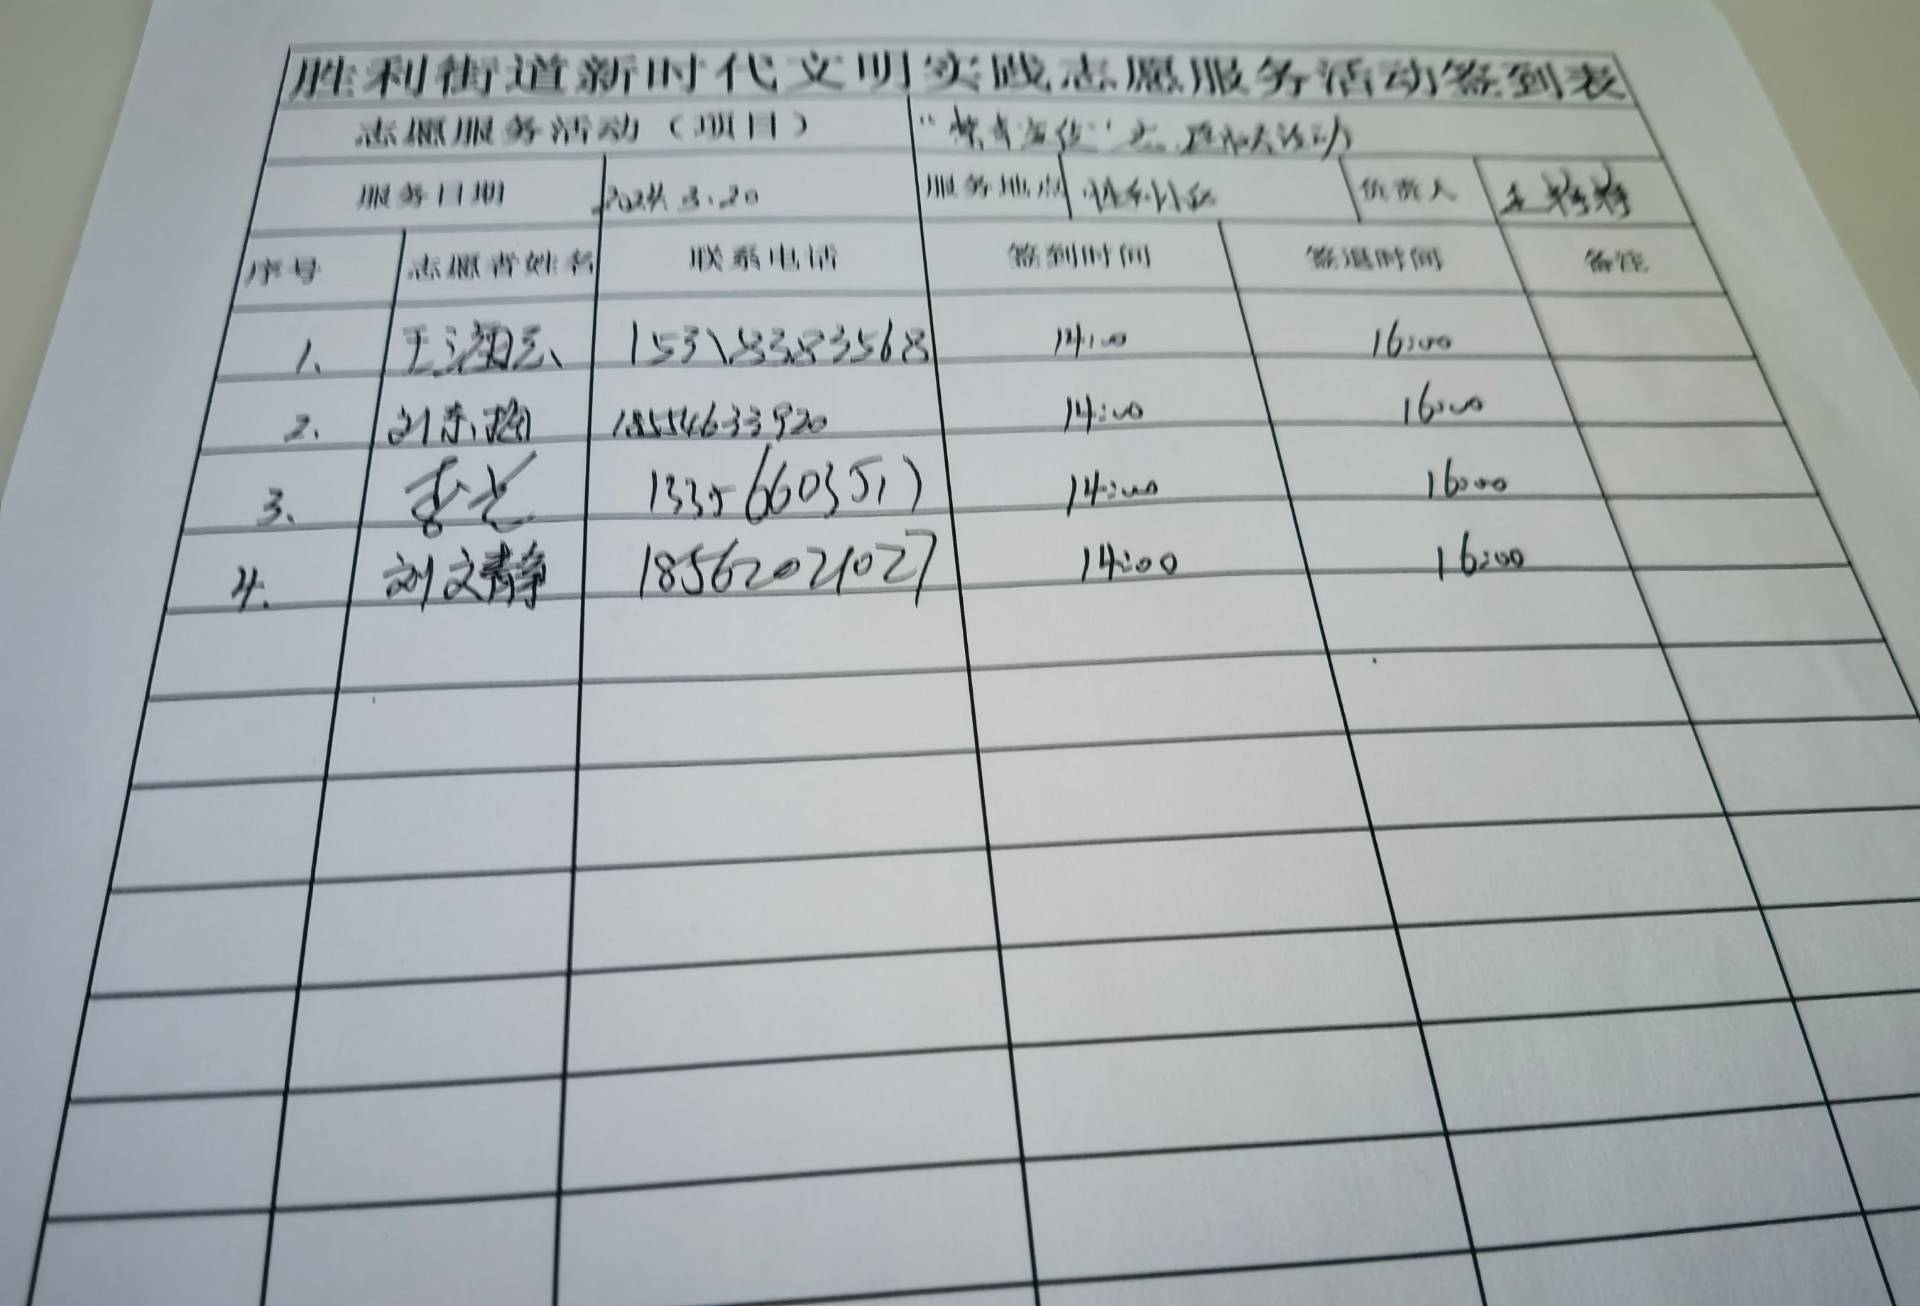 胜利街道新时代文明实践志愿服务活动签到表
志愿服务活动（项目）
服务日期 2024.3.20 服务地点 胜利社区 负责人
序号 志愿者姓名 联系电话 签到时间 签退时间 备注
1、 15318383568 14:00 16:00
2. 18554633920 14:00 16:00
3、 13356603517 14:00 16:00
4. 刘文静 18562021027 14:00 16:00